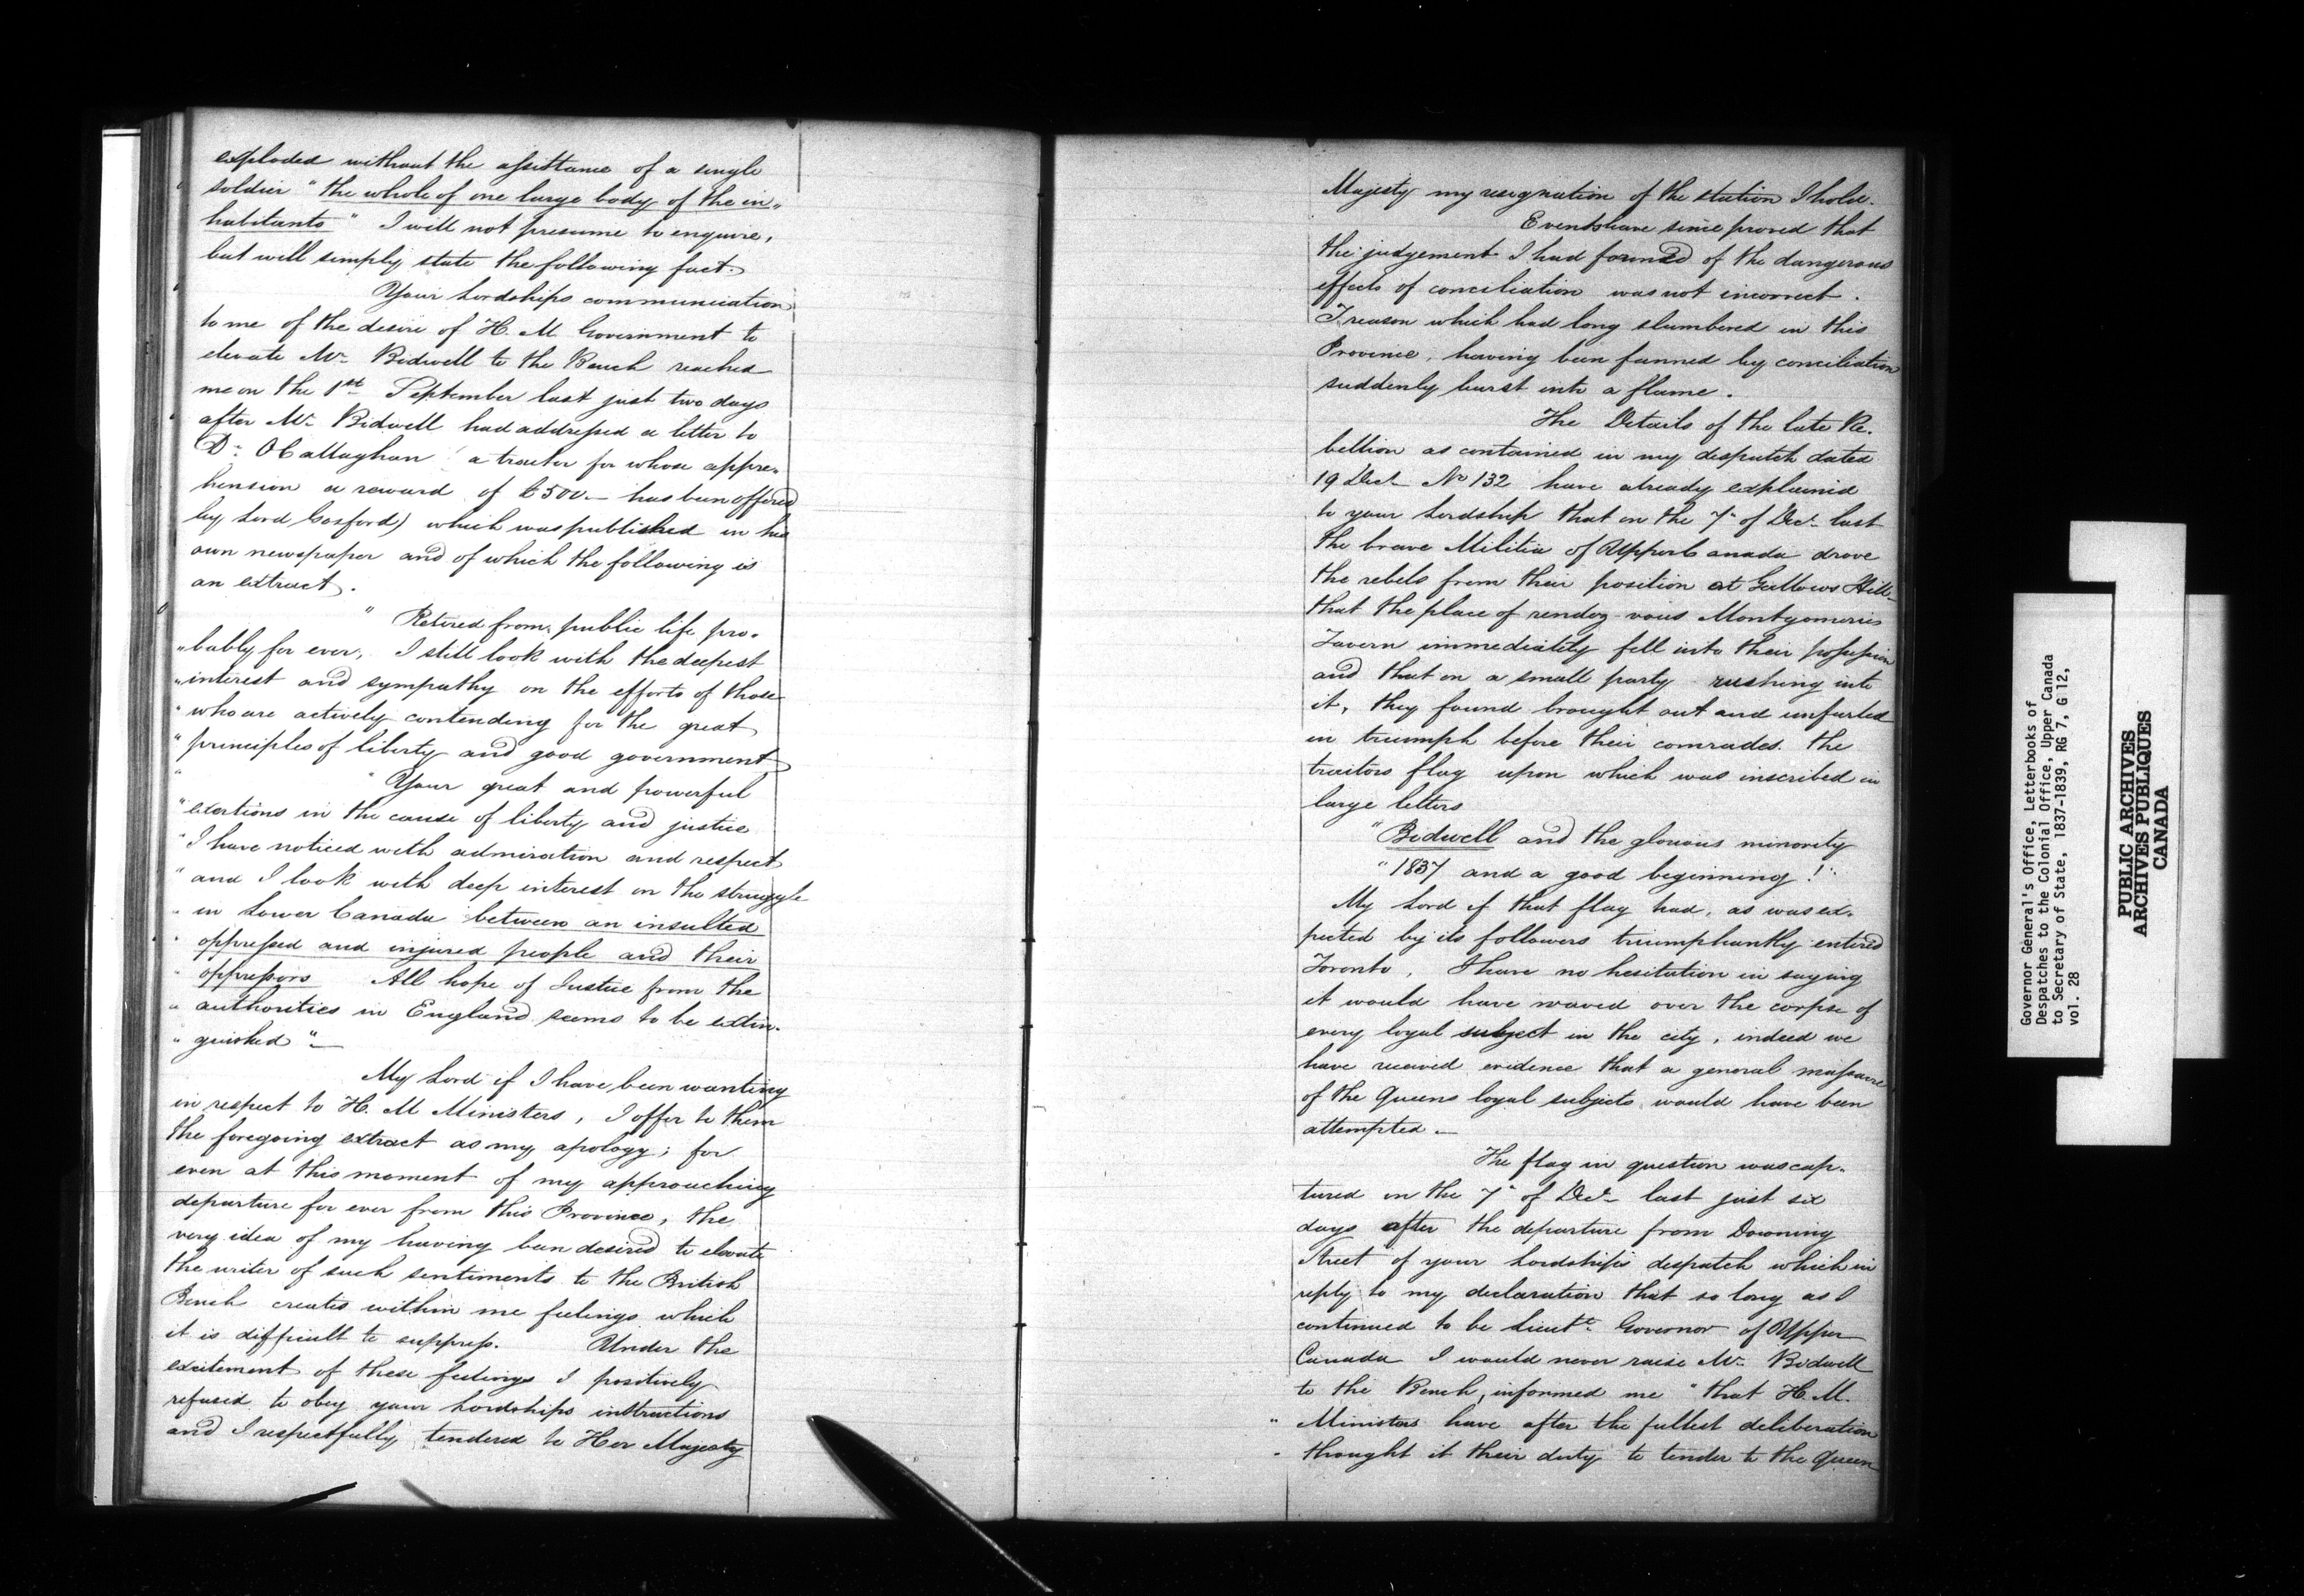 exploded without the assistance of a single
soldier "the whole of one large body of the in„
habitants" I will not presume to enquire,
but will simply state the following fact.
Your Lordships communication
to me of the desire of H. M Government to
elevate Mr Bidwell to the Bench reached
me on the 1st September last just two days
after Mr Bidwell had addressed a letter to
Dr OCallaghan (a traitor for whose appre-
hension a reward of £500.— has been offered
by Lord Gosford) which was published in his
own newspaper and of which the following is
an extract.
" Retired from public life pro-
„bably for ever, I still look with the deepest
„interest and sympathy on the efforts of those
" who are actively contending for the great
" principles of liberty and good government
" "Your great and powerful
" exertions in the cause of liberty and justice
" I have noticed with admiration and respect
" and I look with deep interest on the struggle
" in Lower Canada between an insulted
" oppressed and injured people and their
" oppressors All hope of Justice from the
" authorities in England seems to be extin-
" guished "—
My Lord if I have been wanting
in respect to H. M Ministers, I offer to them
the foregoing extract as my apology; for
even at this moment of my approaching
departure for ever from this Province, the
very idea of my having been desired to elevate
the writer of such sentiments to the British
Bench creates within me feelings which
it is difficult to suppress. Under the
excitement of these feelings I positively
refused to obey your Lordships instructions
and I respectfully tendered to Her Majesty
Majesty my resignation of the station I hold.
Events have since proved that
the judgement I had formed of the dangerous
effects of conciliation was not incorrect.
Treason which had long slumbered in this
Province, having been fanned by conciliation
suddenly burst into a flame.
The Details of the late Re-
bellion as contained in my despatch dated
19 Dect No 132 have already explained
to your Lordship that on the 7" of Decr last
the brave Militia of Upper Canada drove
the rebels from their position at Gallows Hill—
that the place of rendez-vous Montgomeries
Tavern immediately fell into their possession
and that on a small party rushing into
it, they found brought out and unfurled
in triumph before their comrades. the
traitors flag upon which was inscribed in
large letters
"Bidwell and the glorious minority
"1837 and a good beginning!"
My Lord if that flag had, as was ex-
pected by its followers triumphantly entered
Toronto, I have no hesitation in saying
it would have waved over the corpse of
every loyal subject in the city, indeed we
have received evidence that a general massacre
of the Queens loyal subjects would have been
attempted—
The flag in question was cap-
tured on the 7" of Decr last just six
days after the departure from Downing
Street of your Lordships despatch which in
reply to my declaration that so long as I
continued to be Lieutt Governor of Upper
Canada I would never raise Mr Bidwell
to the Bench, informed me "that H. M.
" Ministers have after the fullest deliberation
" thought it their duty to tender to the Queen
Governor General's Office, Letterbooks of
Despatches to the Colonial Office, Upper Canada
to Secretary of State, 1837-1839, RG 7, G 12,
vol. 28
PUBLIC ARCHIVES
ARCHIVES PUBLIQUES
CANADA